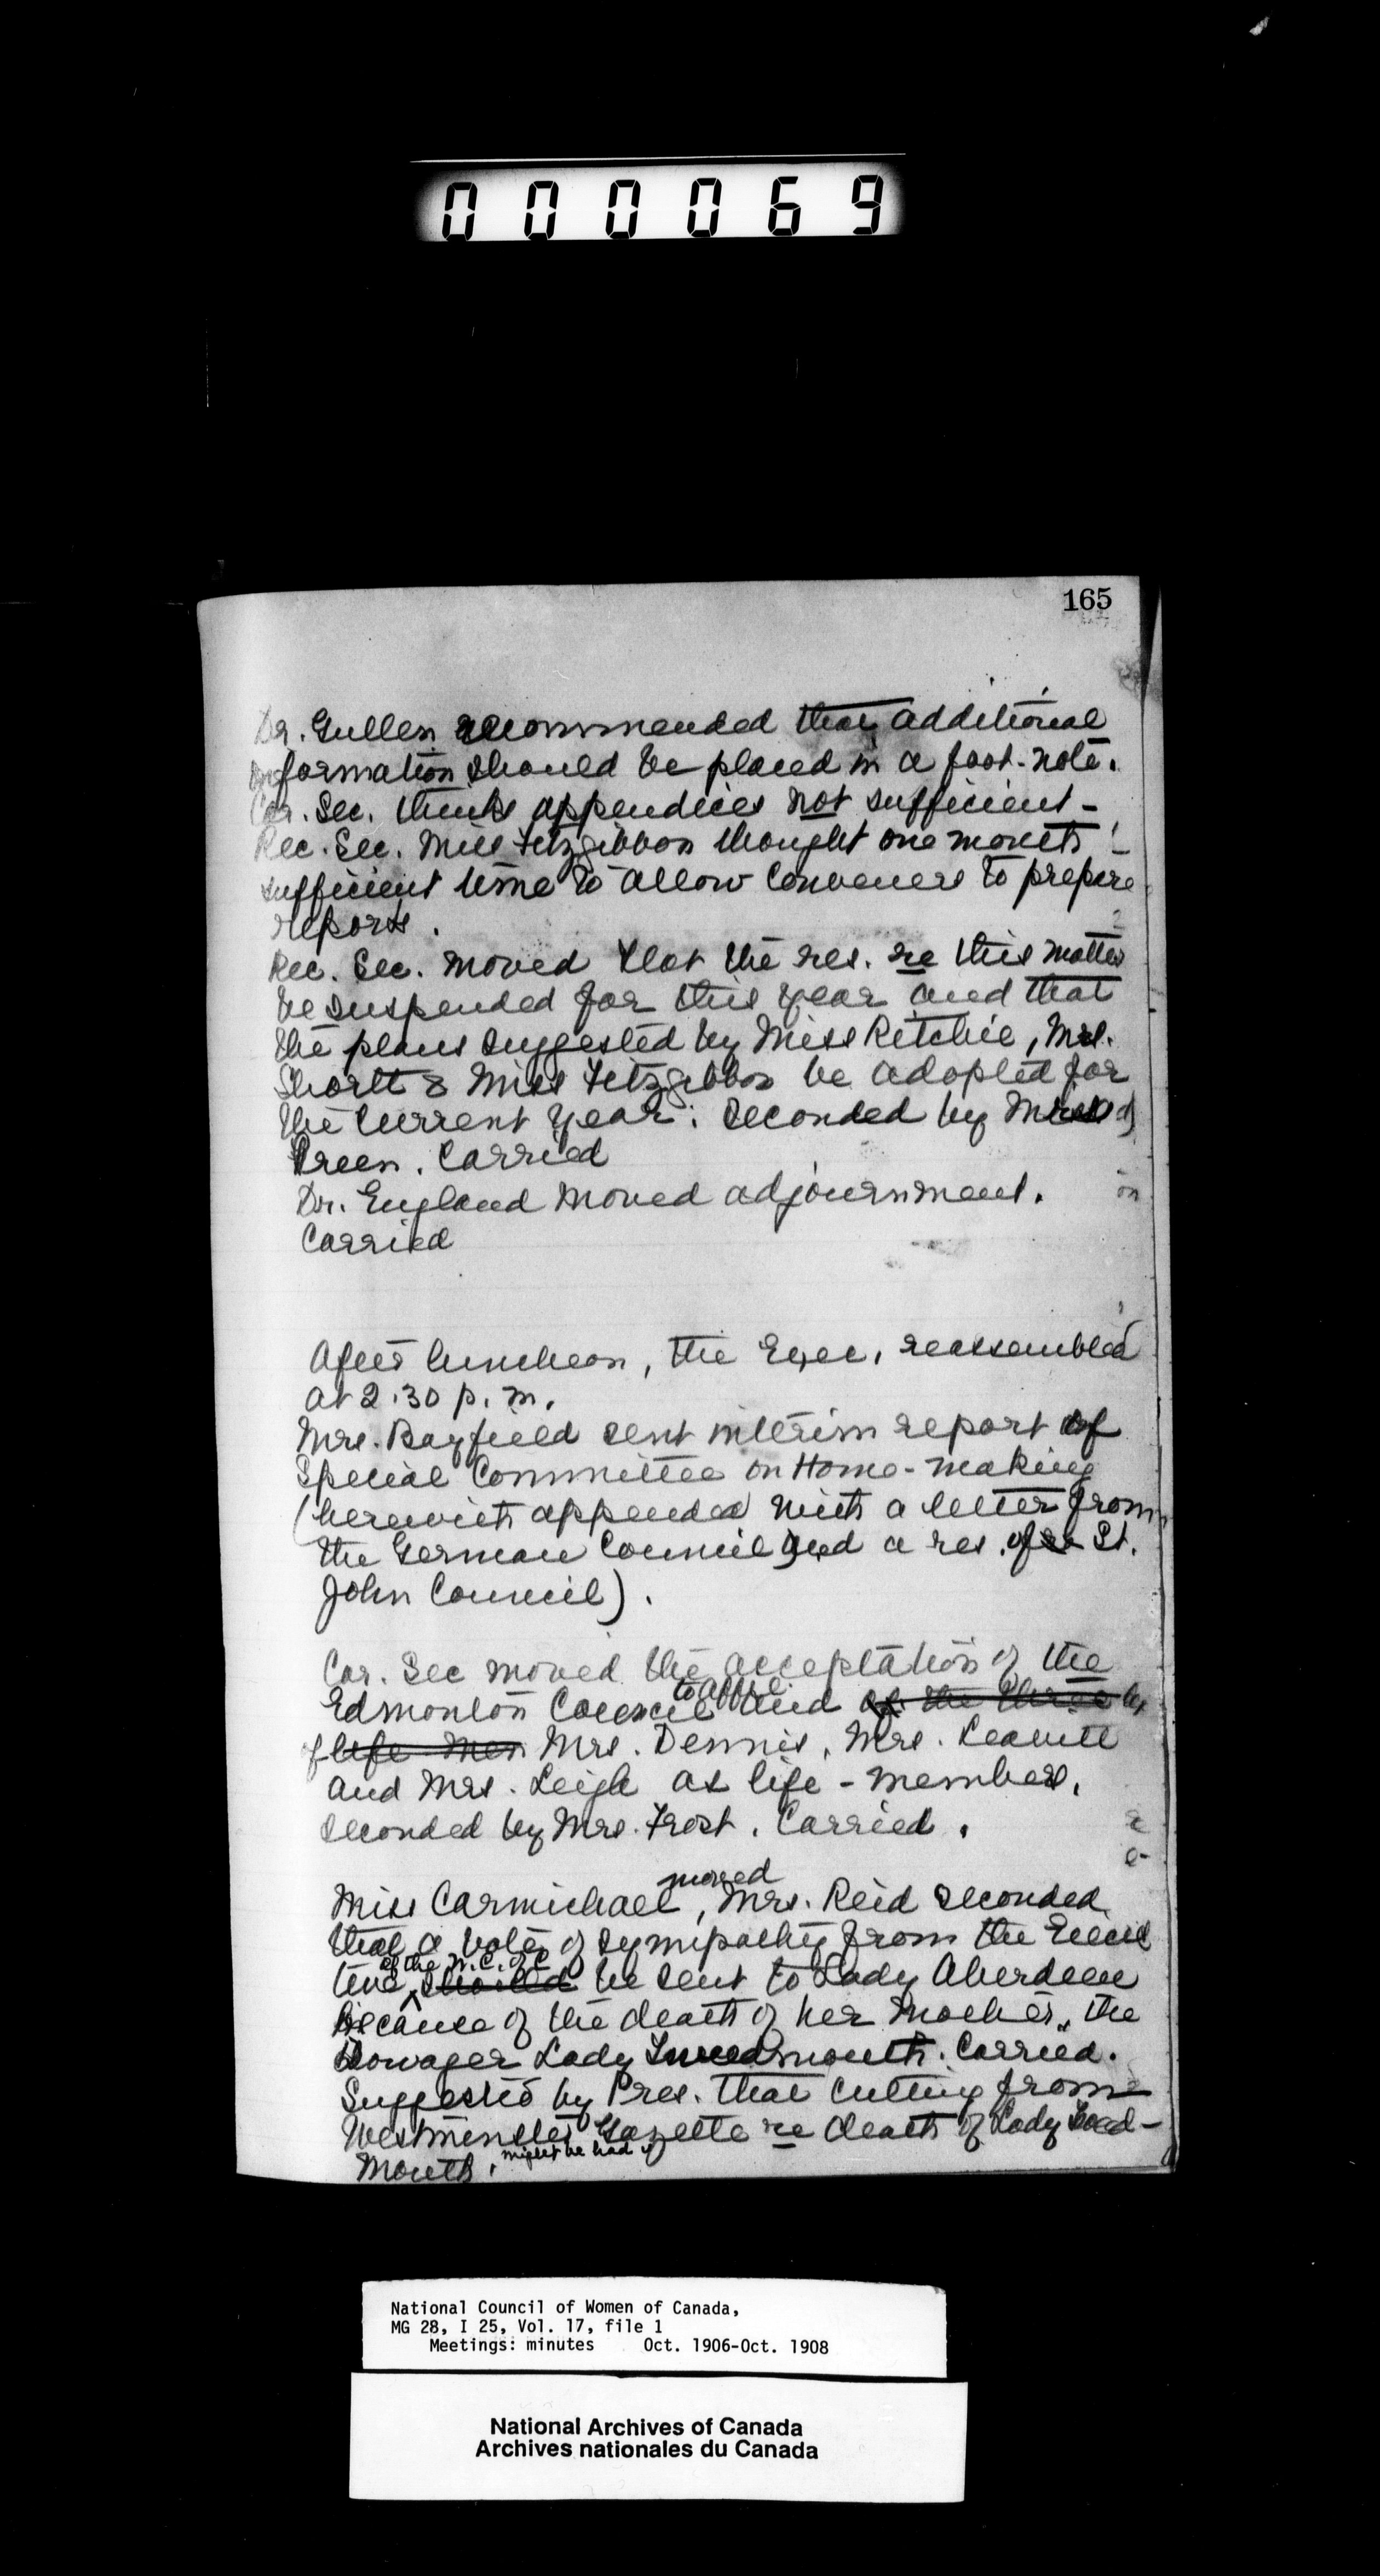 000069
165
Dr. Gullen recommended that additional
information should be placed in a foot-note.
Cor. Sec. thinks appendices not sufficient -
Rec. Sec. Miss Fitzgibbon thought one month
sufficient time to allow Conveners to prepare
reports.
Rec. Sec. moved that the res. re this matter
be suspended for this year and that
the plans suggested by Miss Ritchie, Mrs.
Shortt & Miss Fitzgibbon be adopted for
the current year: Seconded by Miss
Green. Carried
Dr. England moved adjournment.
Carried
After luncheon, the Exec. reassembled
at 2.30 p.m.
Mrs. Bayfield sent interim report of
Special Committee on Home-making
(herewith appended with a letter from
the German Council and a res. of St.
John Council).
Cor. Sec moved the acceptation of the
to affil.
Edmonton Council and of the three
of life mem Mrs. Dennis, Mrs. Leavitt
and Mrs. Leigh as life-members,
seconded by Mrs. Frost. Carried.
moved
Miss Carmichael, Mrs. Reid seconded
that a vote of sympathy from the Execu
of the N.C. of C
tive should be sent to Lady Aberdeen
because of the death of her mother, the
Dowager Lady Tweedmouth. Carried.
Suggested by Pres. that cutting from
Westminster Gazette re death of Lady Tweed-
mouth, might be had
National Council of Women of Canada,
MG 28, I 25, Vol. 17, file 1
Meetings: minutes Oct. 1906-Oct. 1908
National Archives of Canada
Archives nationales du Canada